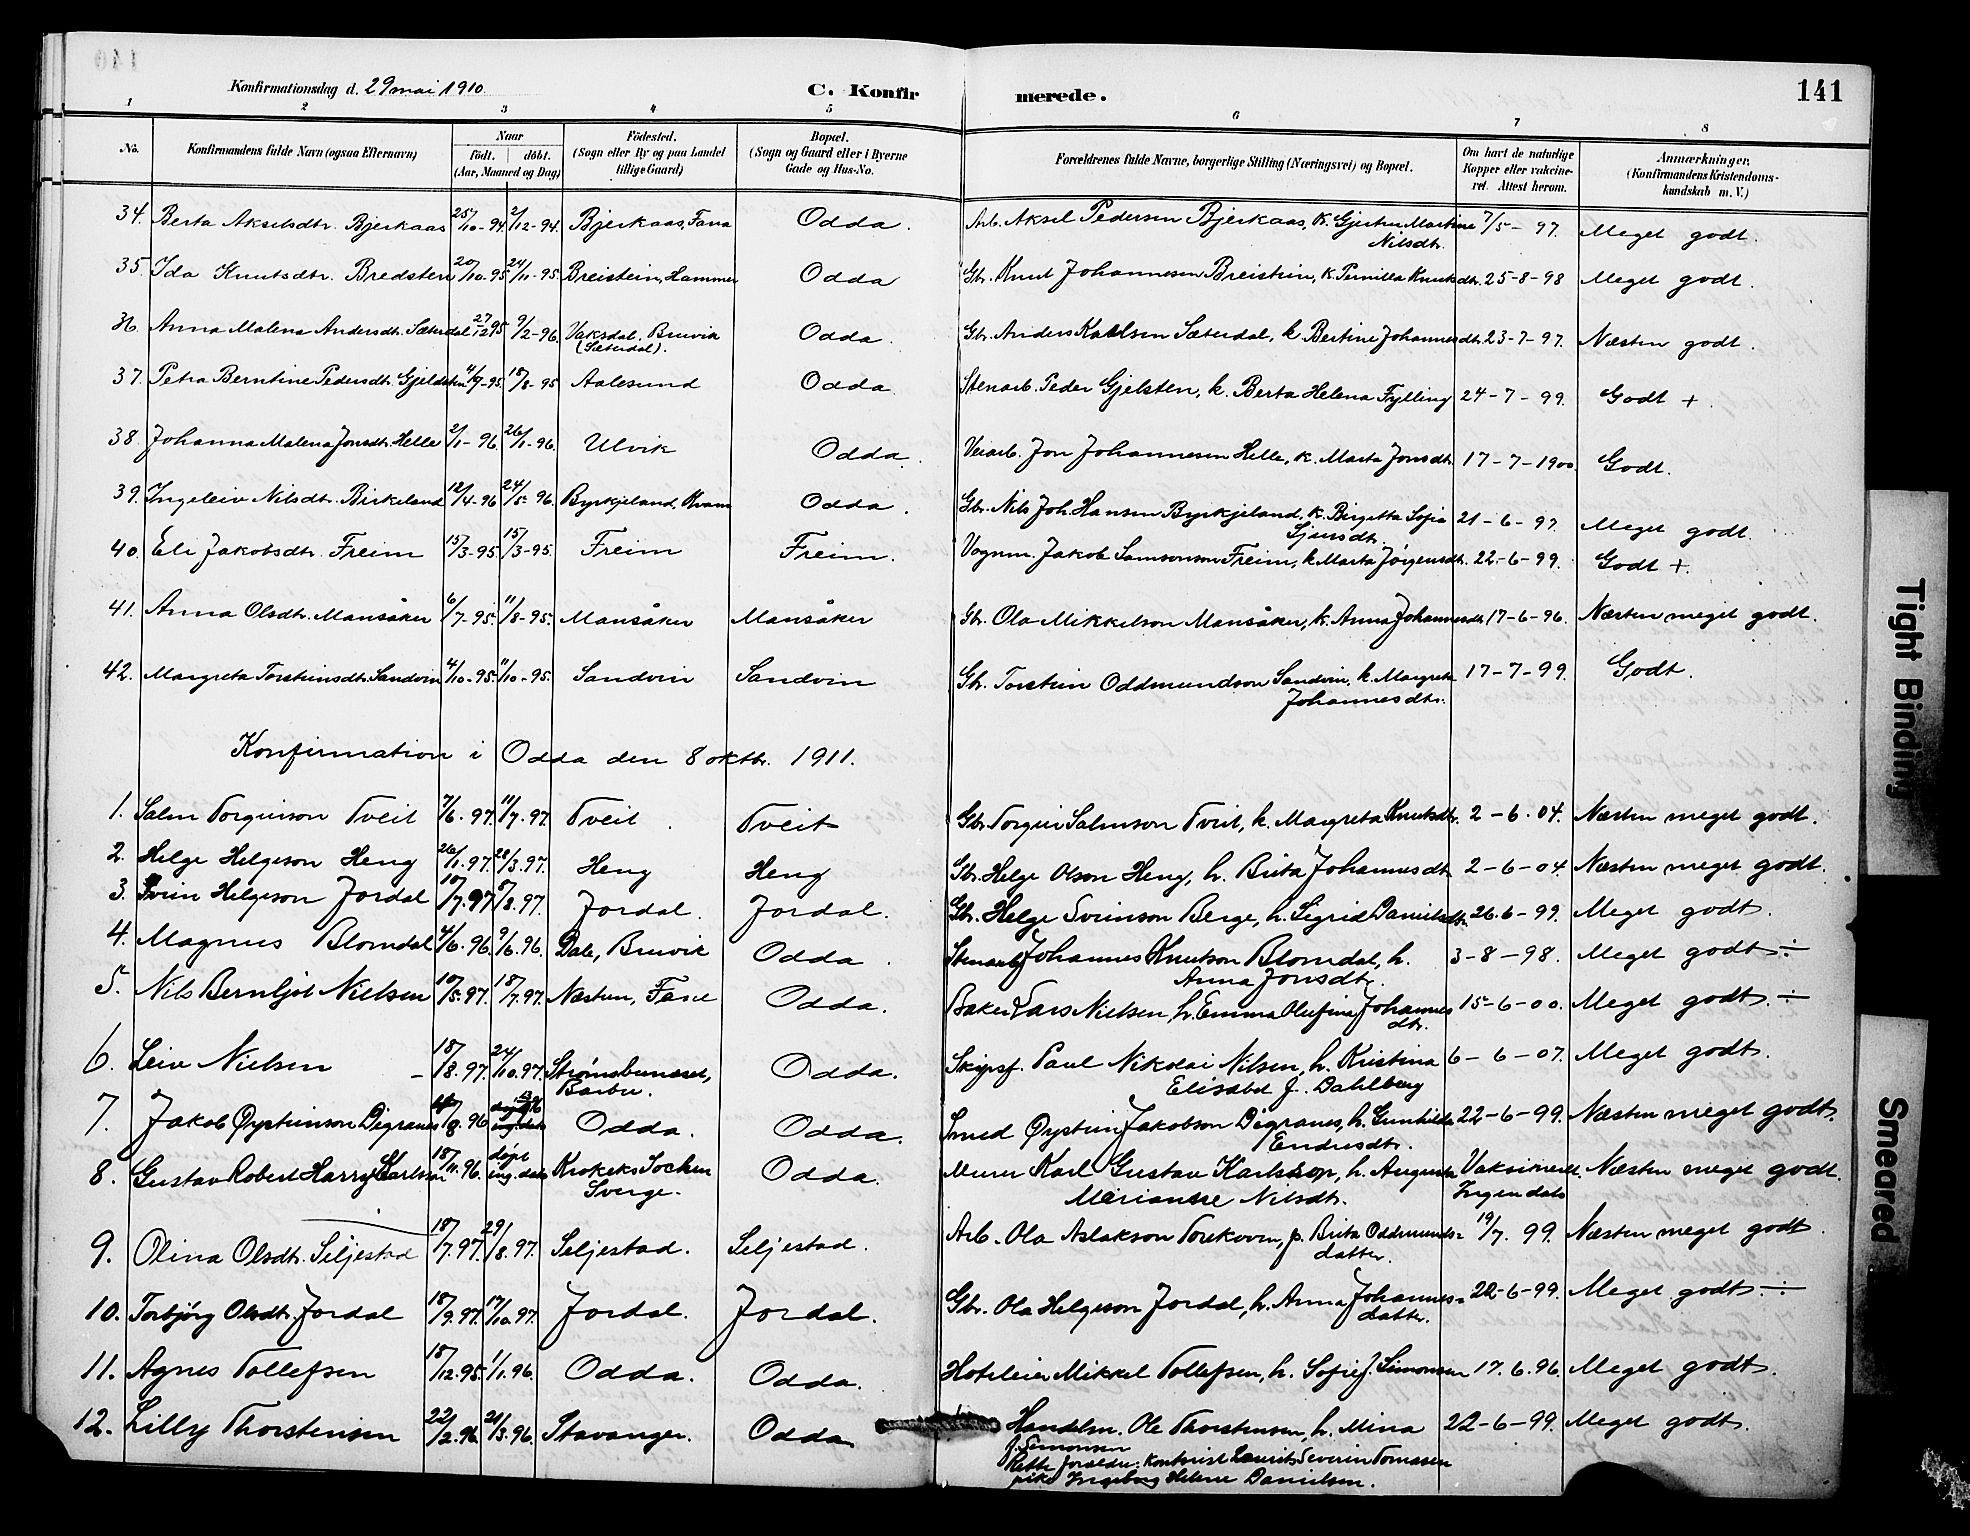 Konfirmationsdag d. 29 mai 1910
C. Konfirmerede.
141
1 2 3 4 5 6 7 8
No. Konfirmandens fulde Navn (ogsaa Efternavn) Naar født. døbt. (Aar, Maaned og Dag) Fødested. (Sogn eller By og paa Landet tillige Gaard) Bopæl. (Sogn og Gaard eller i Byerne Gade og Hus-No. Forældrenes fulde Navne, borgerlige Stilling (Næringsvei) og Bopæl. Om havt de naturlige Kopper eller vaccineret. Attest herom. Anmærkninger. (Konfirmandens Kristendomskundskab m. V.)
34. Berta Akselsdtr. Bjerkaas 25/10-94. 2/12-94. Bjerkaas, Fana Odda. Arb. Aksel Pedersen Bjerkaas, k. Gjertru Martine Nilsdtr. 7/5-97. Meget godt.
35. Ida Knutsdtr. Bredsten 20/10-95 24/11-95. Breistein, Hammer Odda Gbr. Knut Johannesen Breistein, k. Pernilla Knutsdtr. 25-8-98 Meget godt.
36. Anna Malena Andersdtr. Sæterdal 27/12 95 9/2-96. Vaksdal, Bruvik (Sæterdal). Odda. Gbr. Anders Karlsen Sæterdal, k. Bertine Johannesdtr. 23-7-97. Næsten godt.
37. Petra Berntine Pedersdtr. Gjelsten 4/7-95. 18/8-95 Aalesund Odda. Stenarb. Peder Gjelsten, k. Berta Helena Fylling 24-7-99. Godt +.
38. Johanna Malena Jonsdtr. Helle 2/1-96. 26/1-96. Ulvik Odda. Veiarb. Jon Johannesen Helle, k. Marta Jonsdtr. 17-7-1900 Godt.
39. Ingeleiv Nilsdtr. Birkeland 12/4-96 24/5-96. Byrkjeland, Kvam Odda. Gbr. Nils Joh. Hansen Byrkjeland, k. Birgitta Sofia Sjursdtr. 21-6-97 Meget godt.
40. Eli Jakobsdtr. Freim 15/3-95. 15/3-95. Freim Freim. Vognm. Jakob Samsonson Freim, k. Marta Jørgensdtr. 22-6-99. Godt +.
41. Anna Olsdtr. Mansåker 6/7-95. 11/8-95. Mansåker Mansåker Gbr. Ola Mikkelson Mansåker, k. Anna Johannesdtr. 17-6-96. Næsten meget godt.
42. Margreta Torsteinsdtr. Sandvin 4/10-95. 11/10-95. Sandvin Sandvin Gbr. Torstein Oddmundson Sandvin, k. Margreta Johannesdtr. 17-7-99. Godt.
Konfirmation i Odda den 8 oktbr. 1911.
1. Salm Torgeirson Tveit 7/6.97. 11/7.97. Tveit. Tveit Gbr. Torgeir Salmson Tveit, h. Margreta Knutsdtr. 2-6.04. Næsten meget godt.
2. Helge Helgeson Heng 26/1.97. 28/3.97. Heng Heng Gbr. Helge Olson Heng, h. Brita Johannesdtr. 2-6-04 Næsten meget godt.
3. Svein Helgeson Jordal 10/7.97 5/8.97. Jordal. Jordal. Gbr. Helge Sveinson Berge, h. Sigrid Danielsdtr. 26.6-99. Meget godt.
4. Magnus Blomdal 4/6.96. 9/6.96. Dale, Bruvik Odda. Stenarb. Johannes Knutson Blomdal, h. Anna Jonsdtr. 3-8-98. Meget godt ÷
5. Nils Bernljot Nielsen 10/5.97. 18/7.97. Næsten, Fane Odda. Baker Lars Nielsen h. Emma Olufine Johannesdtr. 15-6-00. Meget godt. ÷
6. Leiv Nielsen 18/8.97. 24/10.97. Strømsbuneset, Barbu. Odda. Skipsf. Paul Nikolai Nilsen, h. Kristina Elisabet f. Dahlberg 6-6-07. Meget godt.
7. Jakob Øysteinson Digranes /8.96 Odda. Odda. Smed Øystein Jakobson Digranes, h. Gunhilda Endresdtr. 22-6-99. Næsten meget godt.
8. Gustav Robert Harry Karlson 18/11.96. døpt ing. dato Krokeks Socken Sverge. Odda. Murer Karl Gustav Karlsson, h. Augusta Marianne Nilsdtr. Vaksineret. Ingen dato Næsten meget godt.
9. Olina Olsdtr. Seljestad 18/7.97. 29/8.97. Seljestad. Seljestad. Arb. Ola Aslakson Torekoven, p. Brita Oddmundsdatter. 19/7.99. Næsten meget godt.
10. Torbjørg Olsdtr. Jordal 18/9.97. 17/10.97. Jordal. Jordal. Gbr. Ola Helgeson Jordal, h. Anna Johannesdatter. 22-6-99. Meget godt. ÷
11. Agnes Tollefsen 18/12.95. 1/1.96. Odda. Odda. Hoteleier Mikkel Tollefsen, h. Sofie f. Simonsen 17.6.96. Meget godt.
12. Lilly Thorstensen 22/2.96. 21/3.96. Stavanger. Odda. Handelsm. Ole Thorstensen, h. Mina f. Simonsen 22-6-99. Meget godt.
Rette forældre: Kontorist Laurits Severin Tomasen
pike Ingeborg Helene Danielsen.
Tight Binding
Smeared